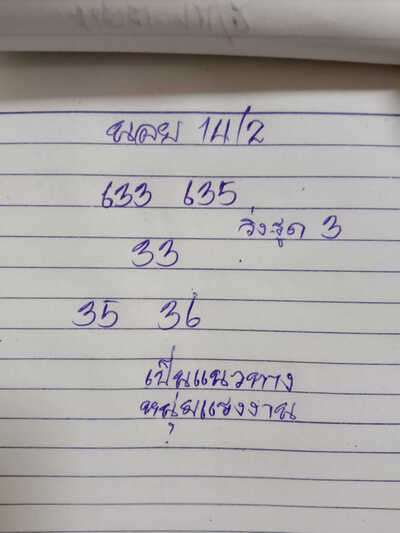 ฮานอย 14/2
633 635
วิ่งรูด 3
33
35 36
เป็นแนวทาง
หนุ่มแซงงาน